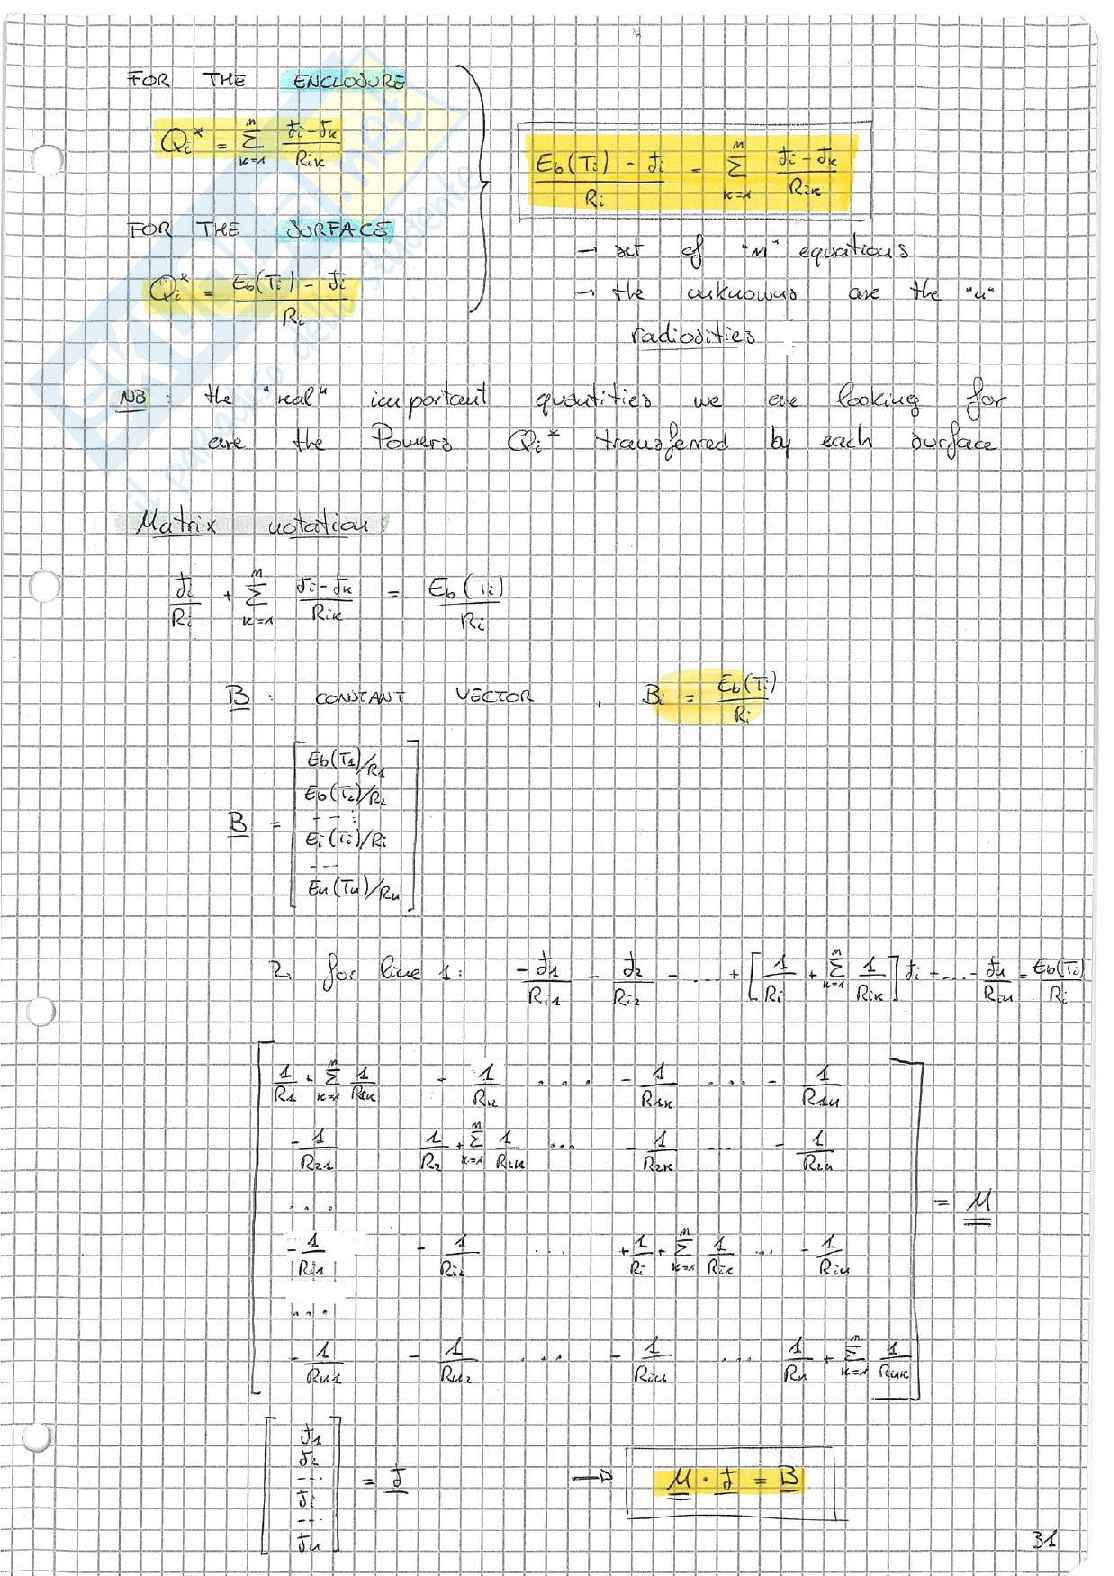 FOR THE ENCLOSURE
Qi* = Σ_{k=1}^{n} (Ji - Jk)/Rik
FOR THE SURFACE
Qi* = (Eb(Ti) - Ji)/Ri
(Eb(Ti) - Ji)/Ri = Σ_{k=1}^{n} (Ji - Jk)/Rik
→ set of "n" equations
→ the unknowns are the "n"
radiosities
NB: the "real" important quantities we are looking for
are the Powers Qi* transferred by each surface
Matrix notation
Ji/Ri + Σ_{k=1}^{n} (Ji - Jk)/Rik = Eb(Ti)/Ri
B: CONSTANT VECTOR, Bi = Eb(Ti)/Ri
Eb(T1)/R1
Eb(T2)/R2
--:
B = Ei(Ti)/Ri
---
En(Tn)/Rn
2. for line 1: -J1/Ri1 - J2/Ri2 - ... + [1/Ri + Σ_{k=1}^{n} 1/Rik] Ji - ... - Jn/Rin = Eb(Ti)/Ri
1/R1 + Σ_{k=1}^{n} 1/R1k - 1/R12 .... - 1/R1k ... - 1/R1n
-1/R21 1/R2 + Σ_{k=1}^{n} 1/R2k ... - 1/R2k --- - 1/R2n
.... = M
-1/Ri1 - 1/Ri2 .... + 1/Ri + Σ_{k=1}^{n} 1/Rik ... - 1/Rin
....
-1/Rn1 - 1/Rn2 .... - 1/Rin ... 1/Rn + Σ_{k=1}^{n} 1/Rnk
J1
J2
---
Ji = J → M · J = B
---
Jn
31